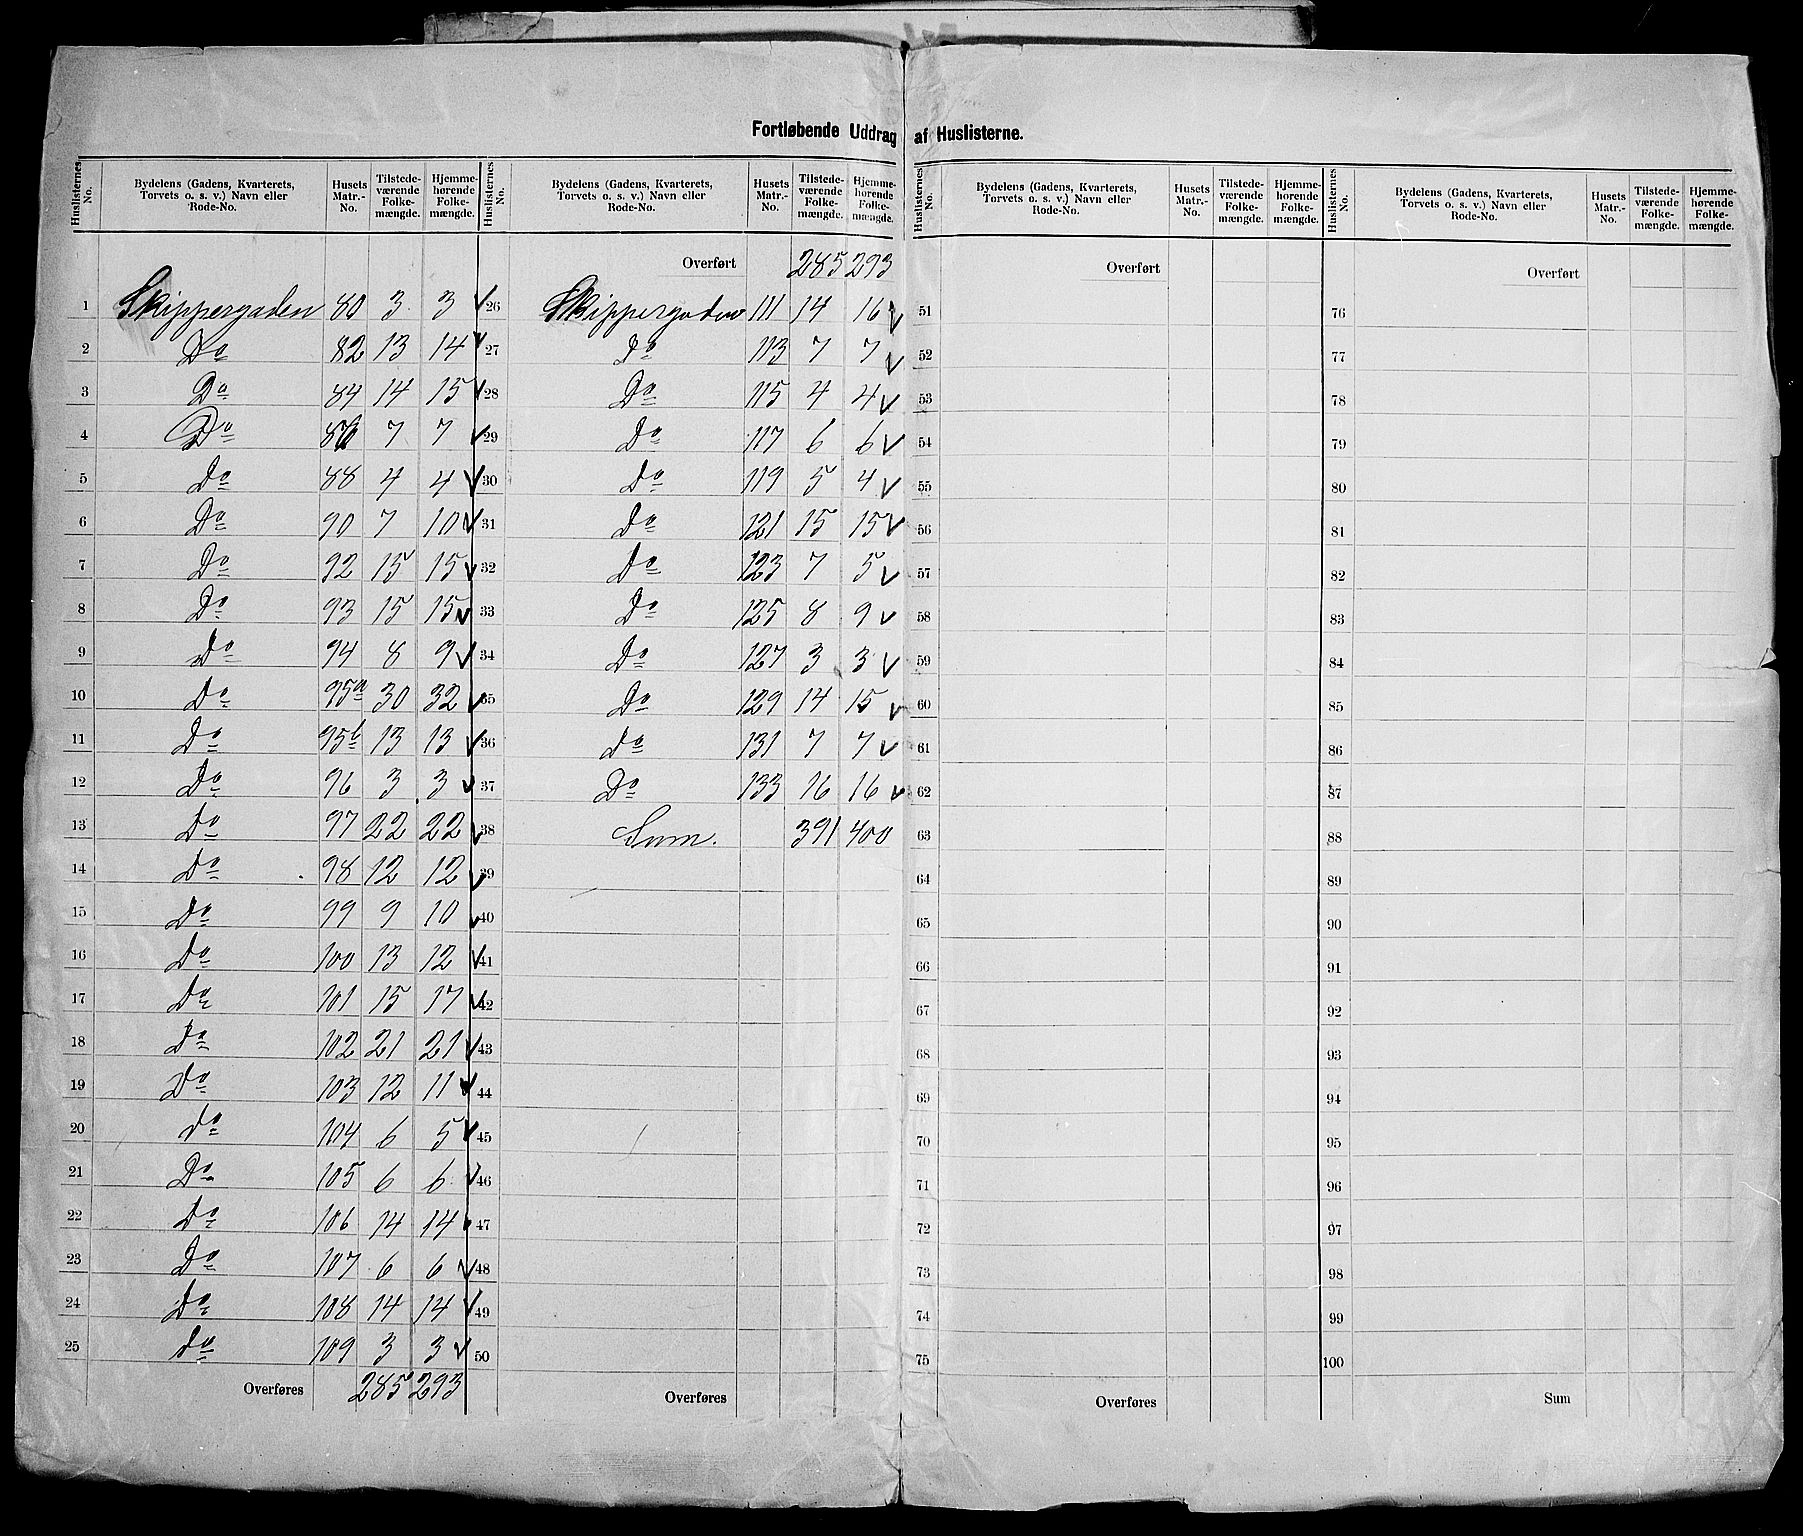 Fortløbende Uddrag af Huslisterne.
Huslisternes No. | Bydelens (Gadens, Kvarterets, Torvets o. s. v.) Navn eller Rode-No. | Husets Matr.-No. | Tilstedeværende Folkemængde. | Hjemmehørende Folkemængde.
1 Skippergaden 80 3 3 ✓
2 Do 82 13 14 ✓
3 Do 84 14 15 ✓
4 Do 86 7 7 ✓
5 Do 88 4 4 ✓
6 Do 90 7 10 ✓
7 Do 92 15 15 ✓
8 Do 93 15 15 ✓
9 Do 94 8 9 ✓
10 Do 95a 30 32 ✓
11 Do 95b 13 13 ✓
12 Do 96 3 3 ✓
13 Do 97 22 22 ✓
14 Do 98 12 12 ✓
15 Do 99 9 10 ✓
16 Do 100 13 12 ✓
17 Do 101 15 17 ✓
18 Do 102 21 21 ✓
19 Do 103 12 11 ✓
20 Do 104 6 5 ✓
21 Do 105 6 6 ✓
22 Do 106 14 14 ✓
23 Do 107 6 6 ✓
24 Do 108 14 14 ✓
25 Do 109 3 3 ✓
Overføres 285 293
Huslisternes No. | Bydelens (Gadens, Kvarterets, Torvets o. s. v.) Navn eller Rode-No. | Husets Matr.-No. | Tilstedeværende Folkemængde. | Hjemmehørende Folkemængde.
Overført 285 293
26 Skippergaden 111 14 16 ✓
27 Do 113 7 7 ✓
28 Do 115 4 4 ✓
29 Do 117 6 6 ✓
30 Do 119 5 4 ✓
31 Do 121 15 15 ✓
32 Do 123 7 5 ✓
33 Do 125 8 9 ✓
34 Do 127 3 3 ✓
35 Do 129 14 15 ✓
36 Do 131 7 7 ✓
37 Do 133 16 16 ✓
38 Sum. 391 400
39
40
41
42
43
44
45
46
47
48
49
50
Overføres
Huslisternes No. | Bydelens (Gadens, Kvarterets, Torvets o. s. v.) Navn eller Rode-No. | Husets Matr.-No. | Tilstedeværende Folkemængde. | Hjemmehørende Folkemængde.
Overført
51
52
53
54
55
56
57
58
59
60
61
62
63
64
65
66
67
68
69
70
71
72
73
74
75
Overføres
Huslisternes No. | Bydelens (Gadens, Kvarterets, Torvets o. s. v.) Navn eller Rode-No. | Husets Matr.-No. | Tilstedeværende Folkemængde. | Hjemmehørende Folkemængde.
Overført
76
77
78
79
80
81
82
83
84
85
86
87
88
89
90
91
92
93
94
95
96
97
98
99
100
Sum